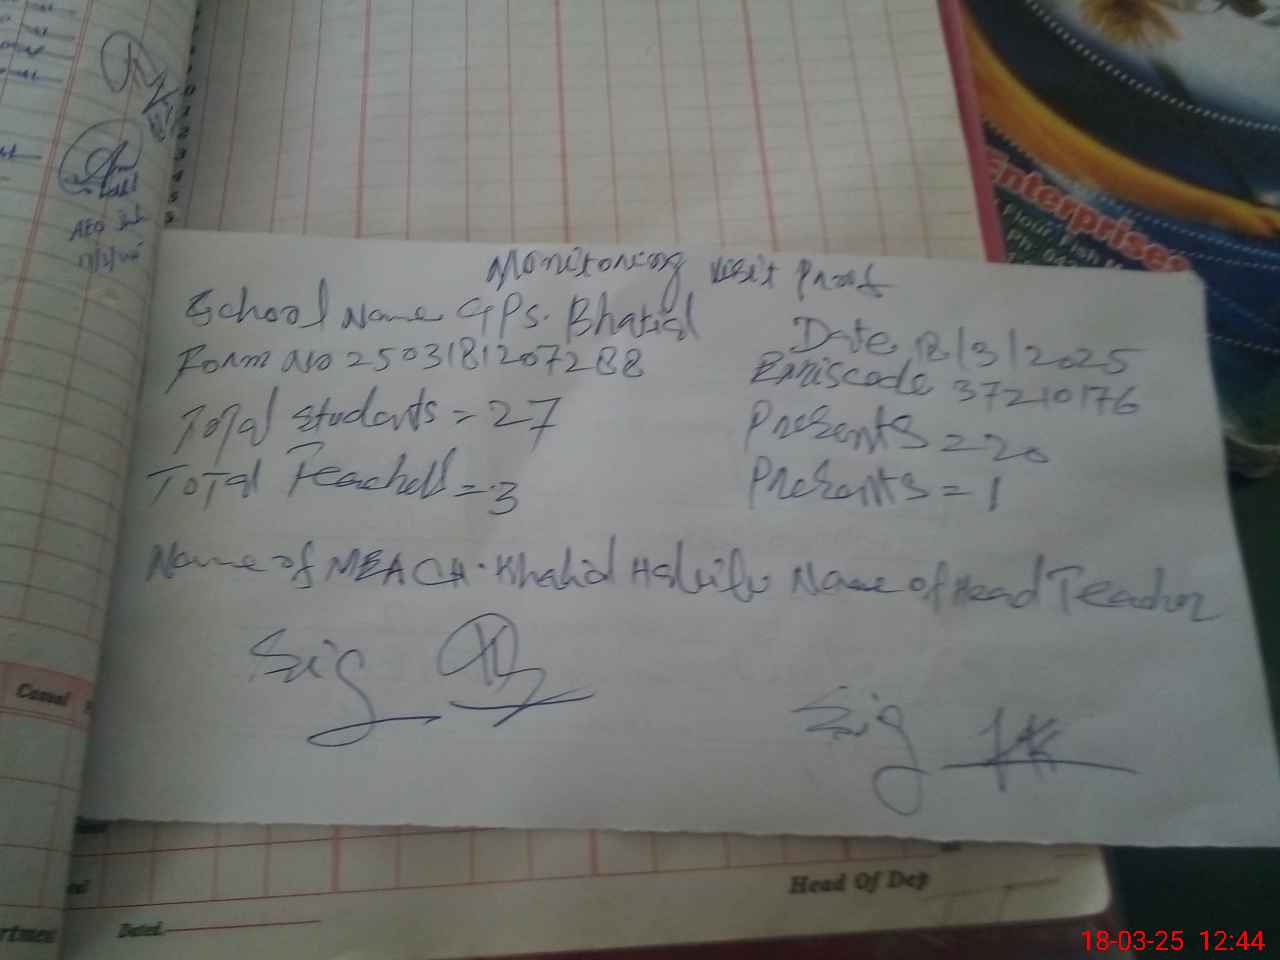 Monitoring visit Proof
School Name GPS. Bhatial
Date 18/3/2025
Form No 2503181207288
Emiscode 37210176
Total students = 27
Presents = 20
Total Teachers = 3
Presents = 1
Name of MEACH. Khalid Name of Head Teacher
Sig
Sig
Enterprises
Casual
AEO
Head Of Dep
Dated
18-03-25 12:44